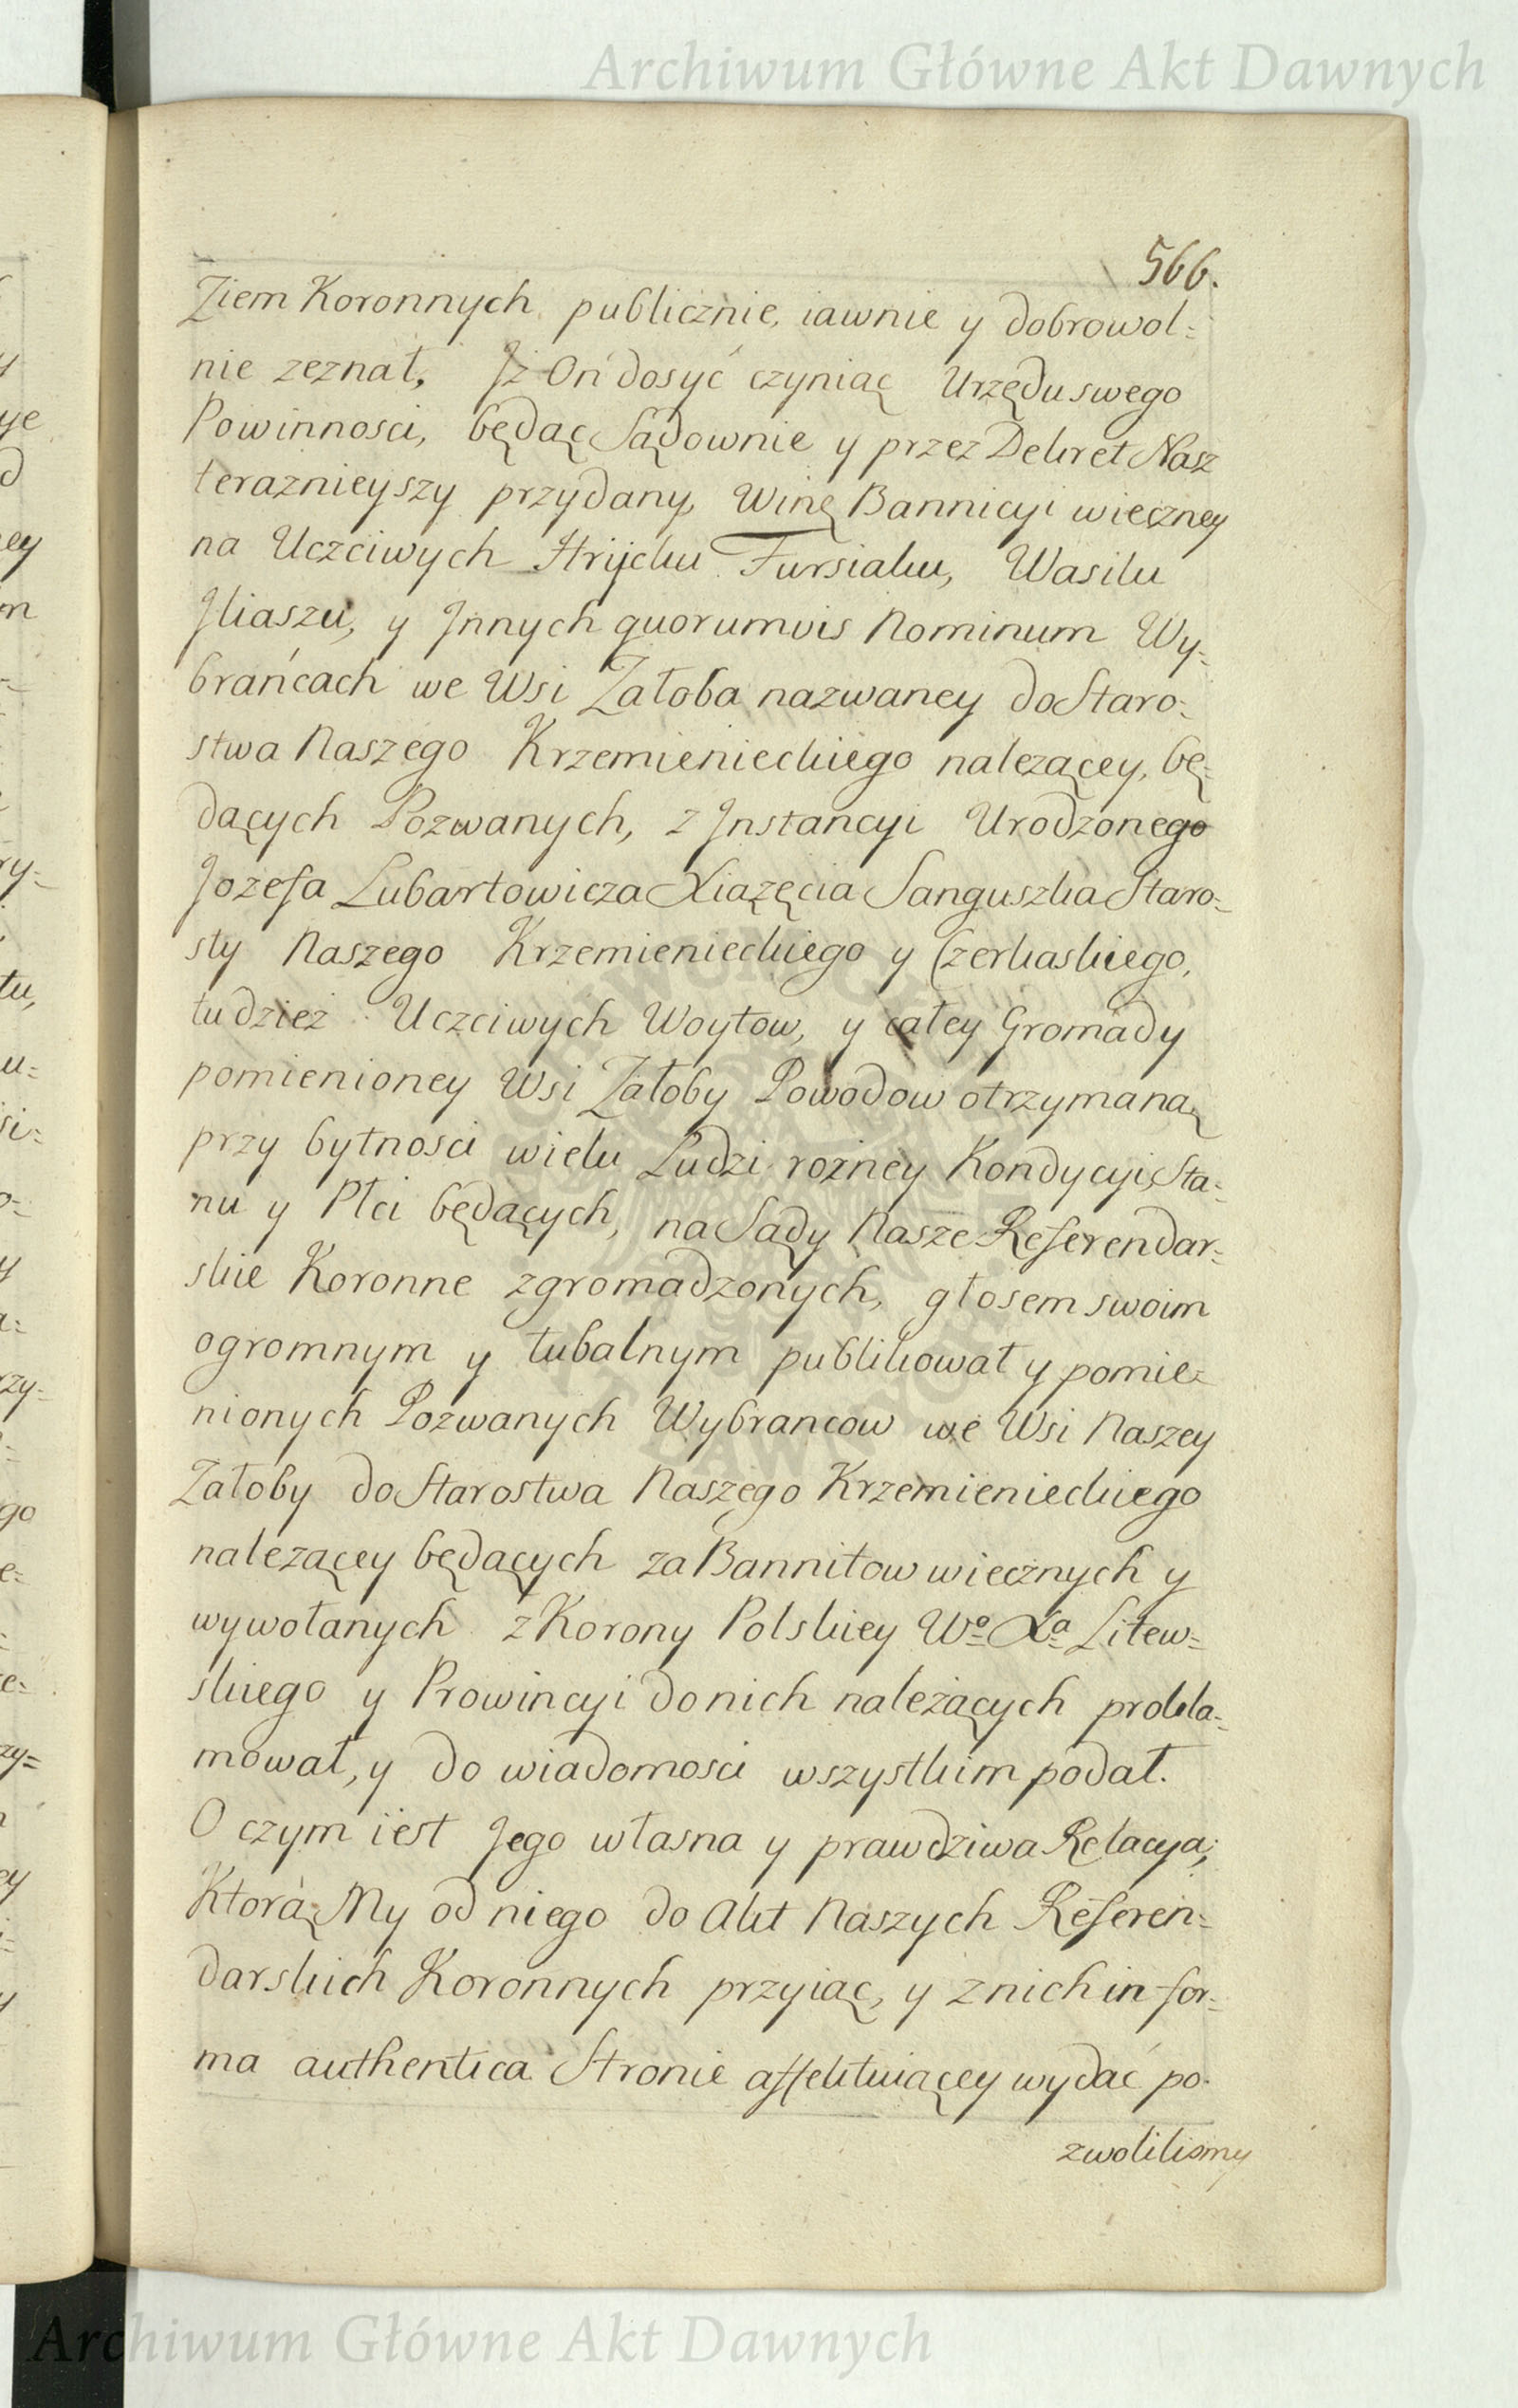 Archiwum Główne Akt Dawnych
566.
Ziem Koronnych publicznie, iawnie y dobrowol=
nie zeznał, Jż On dosyć czyniąc Urzędu swego
Powinnosci, będąc Sądownie y przez Dekret Nasz
teraznieyszy przydany, Winę Bannicyi wieczney
na Uczciwych Hryćku Fursiaku, Wasilu
Jliaszu, y Jnnych quorumvis Nominum Wy=
brańcach we Wsi Załoba nazwaney do Staro=
stwa Naszego Krzemienieckiego nalezącey, bę=
dących Pozwanych, z Jnstancyi Urodzonego
Jozefa Lubartowicza Xiązęcia Sanguszka Staro=
sty Naszego Krzemienieckiego y Czerkaskiego,
tudzież Uczciwych Woytow, y całey Gromady
pomienioney Wsi Załoby Powodow otrzymaną
przy bytnosci wielu Ludzi rożney Kondycyi, Sta=
nu y Płci będących, na Sądy Nasze Referendar=
skie Koronne zgromadzonych, głosem swoim
ogromnym y tubalnym publikował y pomie=
nionych Pozwanych Wybrancow we Wsi Naszey
Załoby do Starostwa Naszego Krzemienieckiego
nalezącey będących za Bannitow wiecznych y
wywołanych z Korony Polskiey Wº Xª Litew=
skiego y Prowincyi do nich należących prokla=
mował, y do wiadomosci wszystkim podał.
O czym iest Jego własna y prawdziwa Relacya;
Ktorą My od niego do Akt Naszych Referen=
darskich Koronnych przyiąc, y z nich in for=
ma authentica Stronie affektuiącey wydać po=
zwolilismy
Archiwum Główne Akt Dawnych